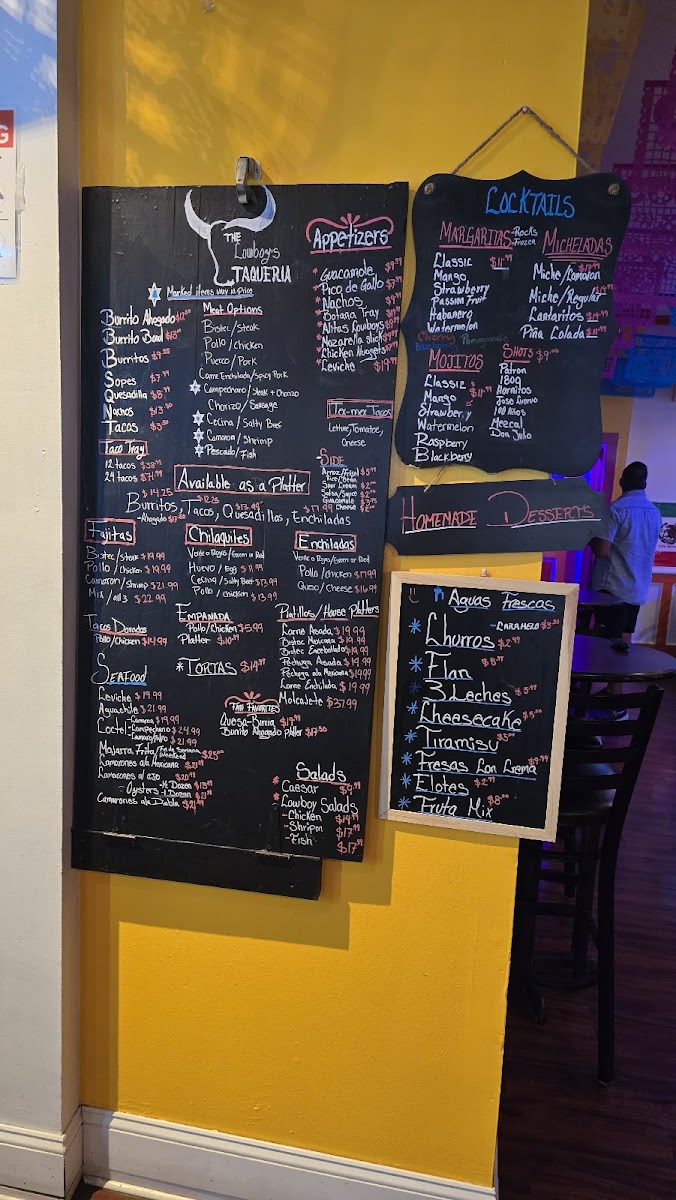 THE
Cowboy's
TAQUERIA
Marked items vary in Price
Burrito Ahogado
Burrito Bowl
Burritos
Sopes $7.99
Quesadilla $8.99
Nachos $13.50
Tacos $3.50
Taco Tray
12 tacos
24 tacos $71.99
Meat Options
Bistec/Steak
Pollo/Chicken
Puerco/Pork
Carne Enchilada/Spicy Pork
Campechano/Steak + Chorizo
Chorizo/Sausage
Cecina/Salty Beef
Camaron/Shrimp
Pescado/Fish
Appetizers
Guacamole
Pico de Gallo
Nachos
Botana Tray
Alitas Cowboys
Mozarella Stick
Chicken Nuggets
Ceviche $19.99
Tia-ma Tacos
Letture, Tomatoe,
Cheese
Side
Arroz/Frijol $5.99
Rice/Bean
Sour Cream
Salsa/Sauce
Guacamole
Cheese
Available as a Platter
$14.25
$12.25
$13.99
$17.99
Burritos, Tacos, Quesadillas, Enchiladas
-Ahogado
Fajitas
Bistec/Steak $19.99
Pollo/Chicken $19.99
Camaron/Shrimp $21.99
Mix/all 3 $22.99
Chilaquiles
Verde o Rojos/Green or Red
Huevo/Egg $11.99
Cecina/Salty Beef $13.99
Pollo/Chicken $13.99
Enchiladas
Verde o Rojas/Green or Red
Pollo/Chicken $17.99
Queso/Cheese $16.99
Tacos Dorados
Pollo/Chicken $14.99
Empanada
Pollo/Chicken $5.99
Platter
Tortas $14.99
Platillos/House Platters
Carne Asada $19.99
Bistec Mexicana $19.99
Bistec Encebollado $19.99
Pechuga Asada $19.99
Pechuga a la Mexicana $19.99
Carne Enchilada $19.99
Molcajete $37.99
Seafood
Ceviche $19.99
Aguachile $21.99
Coctel -Camaron $19.99
-Campechano $24.99
$21.99
Mojarra Frita
Camarones ala Mexicana
Camarones al ajo
Oysters -½ Dozen
-1 Dozen
Camarones ala Diabla
Fan Favorites
Quesa-Birria
Burrito Ahogado Platter $17.50
Salads
Caesar $9.99
Cowboy Salads
-Chicken $14.99
-Shripm $17.99
-Fish $17.99
COCKTAILS
MARGARITAS -Rocks
Frozen
Classic $11.99
Mango
Strawberry
Passion Fruit
Habanero
Watermelon
Cherry
Pomegranate
Blueberry
MICHELADAS
Miche/Camaron
Miche/Regular
Cantaritos
Piña Colada
MOJITOS
Classic $11.99
Mango
Strawberry
Watermelon
Raspberry
Blackberry
SHOTS $9.00
Patron
1800
Hornitos
Jose Cuervo
100 Años
Mezcal
Don Julio
HOMENADE DESSERTS
Aguas Frescas
Churros $2.99
-CARAMELO
Flan
3 Leches
Cheesecake
Tiramisu
Fresas Con Crema
Elotes
Fruta Mix